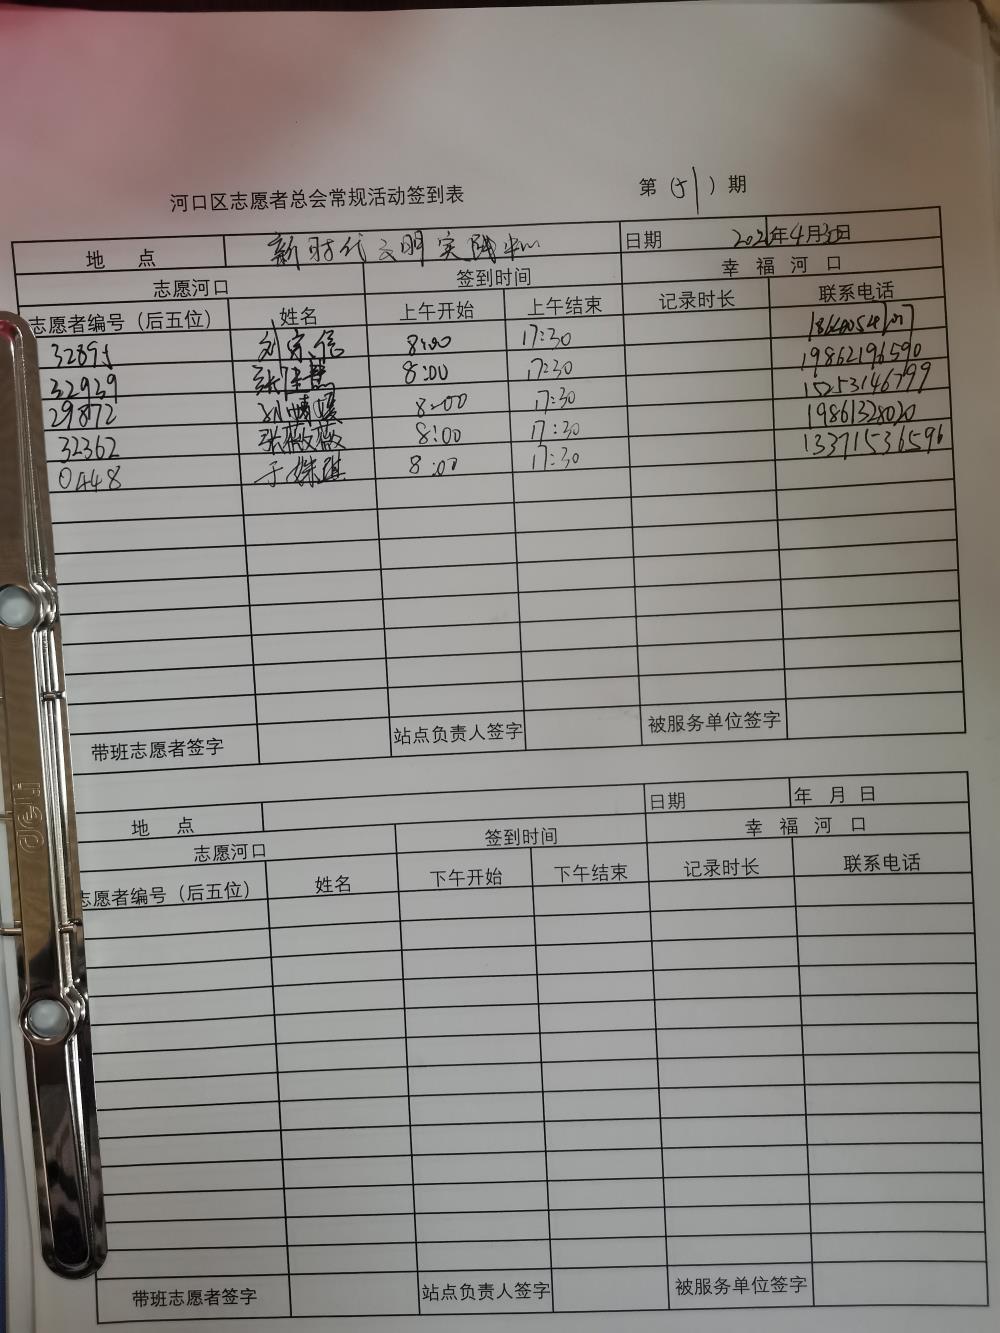 河口区志愿者总会常规活动签到表 第( )期
地 点 新时代文明实践中心 日期 年4月30日
志愿河口 签到时间 幸 福 河 口
志愿者编号（后五位） 姓名 上午开始 上午结束 记录时长 联系电话
32895 8:00 17:30
32939 8:00 17:30 19862196590
29872 8:00 17:30 15253146799
32362 张薇薇 8:00 17:30 19861328020
0A448 8:00 17:30 13371536596
带班志愿者签字 站点负责人签字 被服务单位签字
地 点 日期 年 月 日
志愿河口 签到时间 幸 福 河 口
志愿者编号（后五位） 姓名 下午开始 下午结束 记录时长 联系电话
带班志愿者签字 站点负责人签字 被服务单位签字
deli